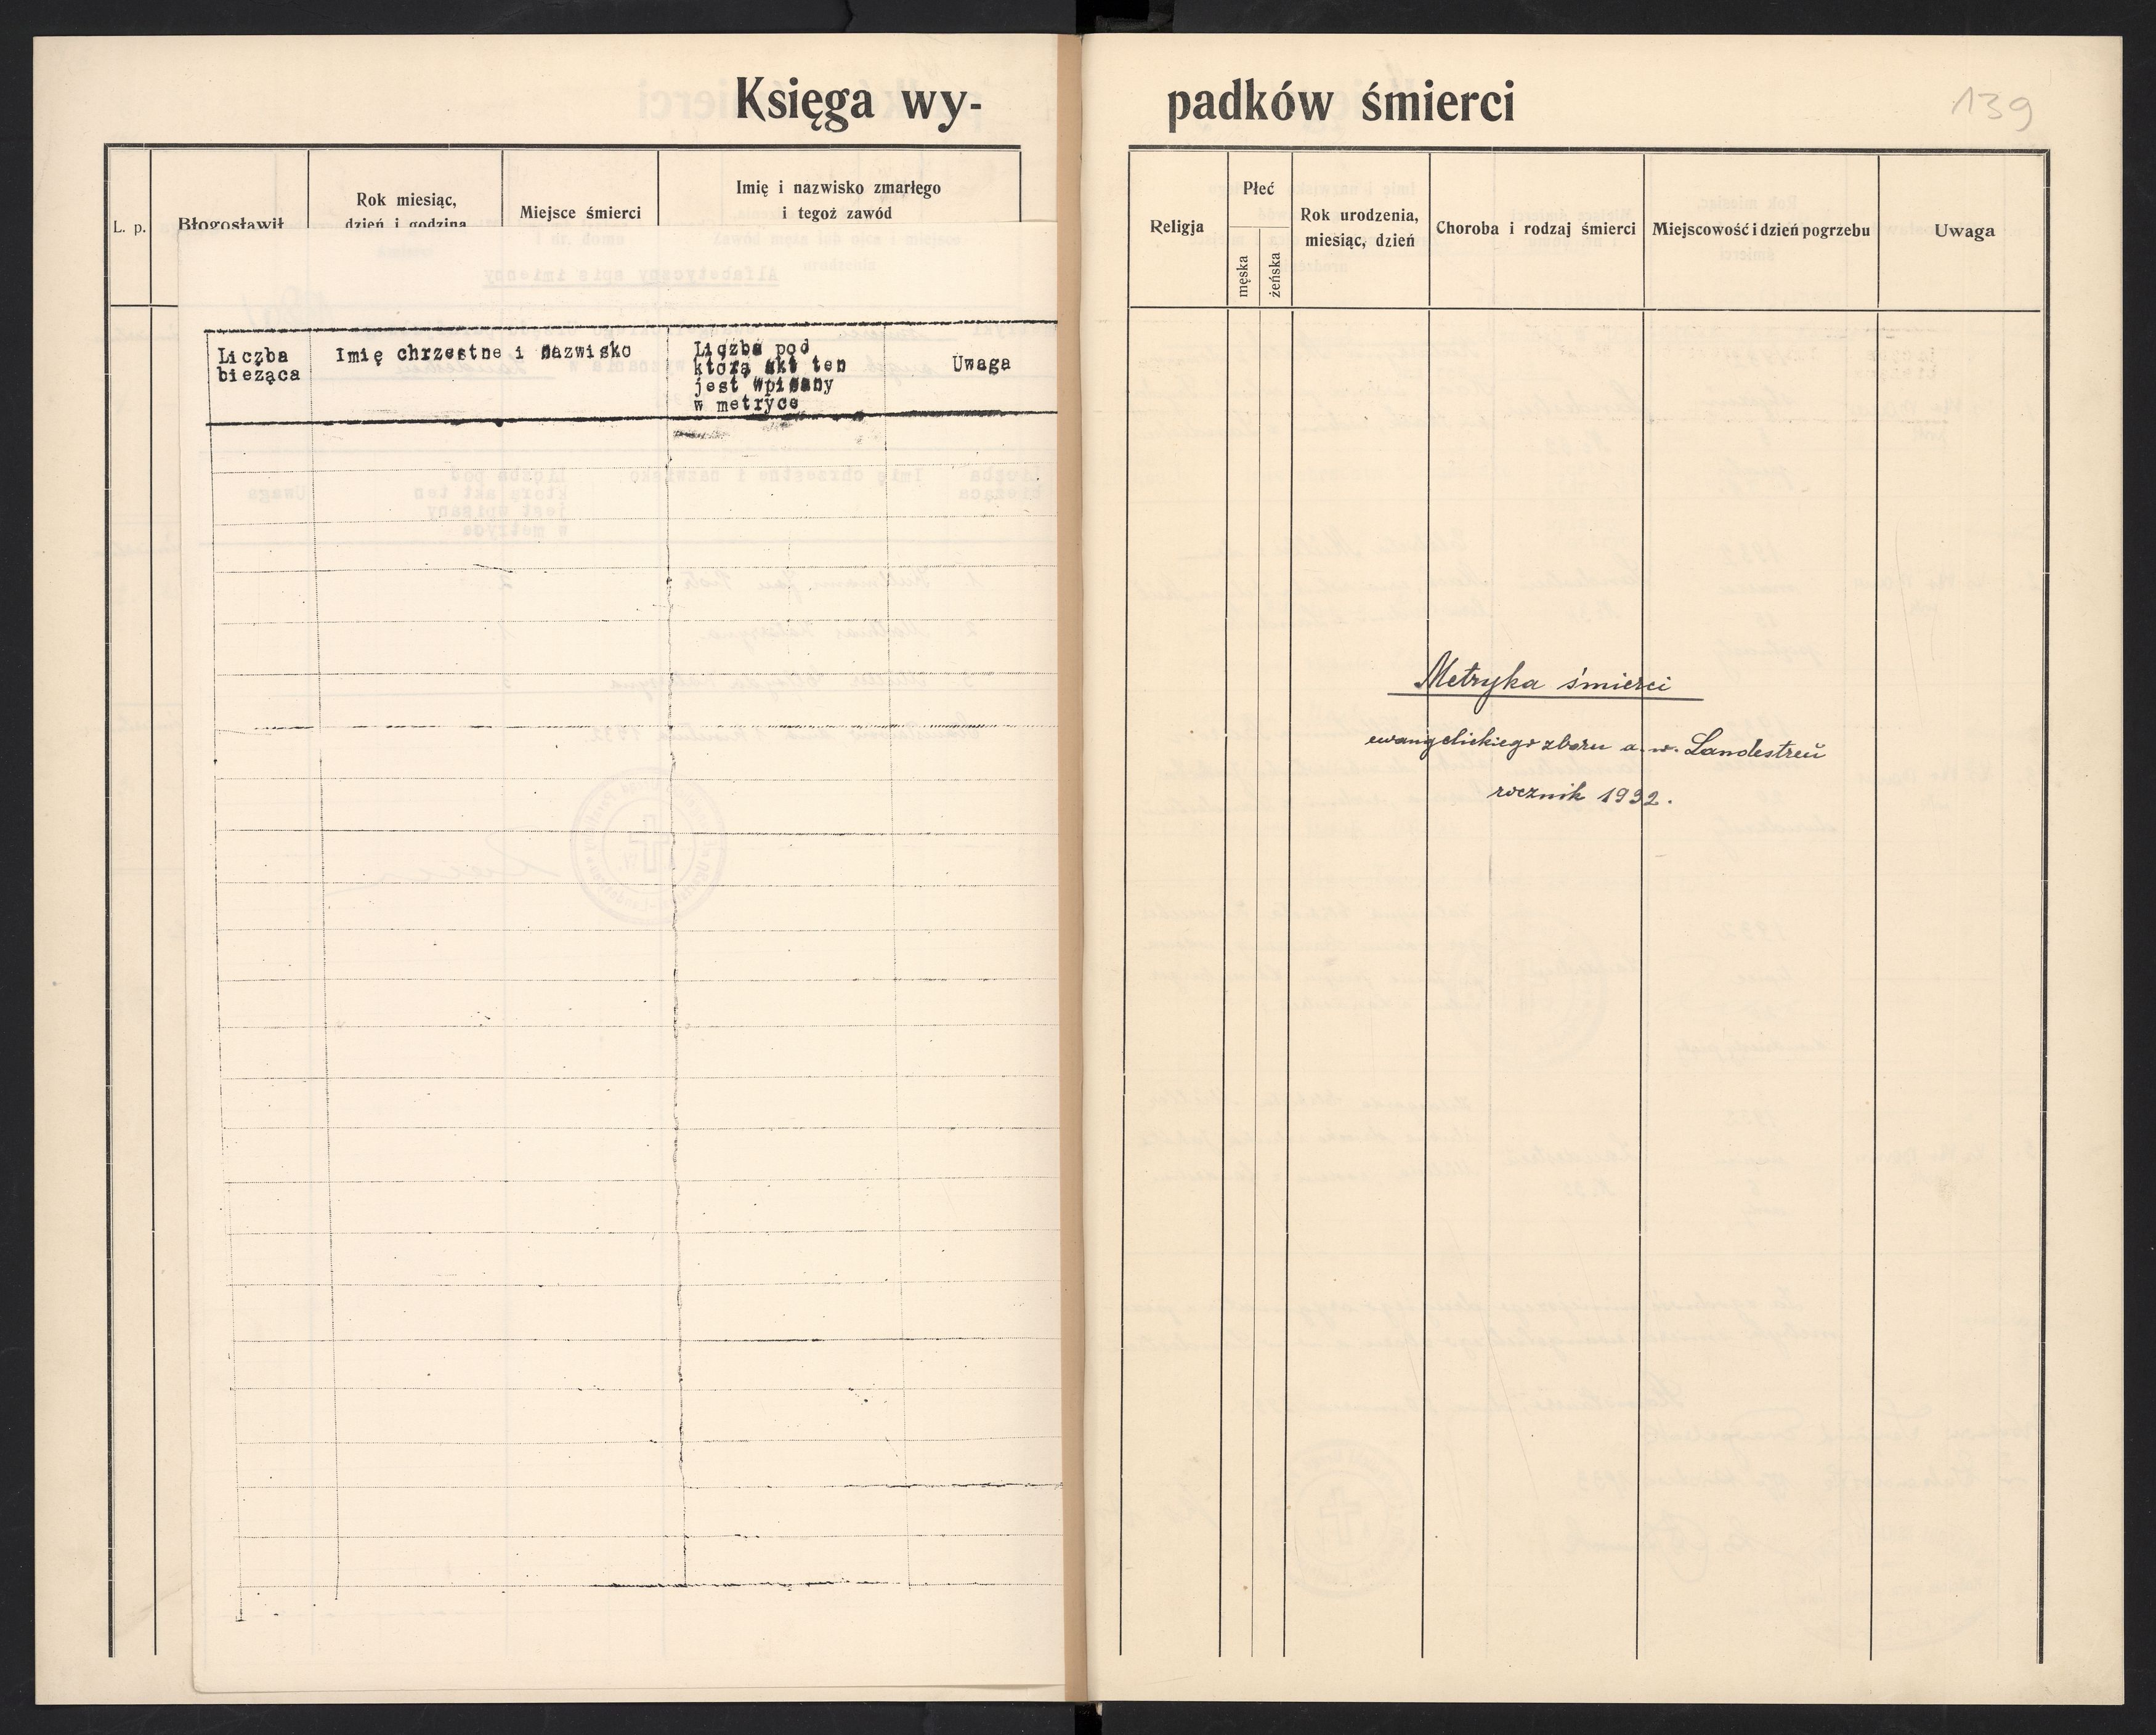 Księga wy-
L. p.
Błogosławił
Rok miesiąc,
dzień i godzina
Miejsce śmierci
Imię i nazwisko zmarłego
i tegoż zawód
Liczba
bieżąca
Imię chrzestne i nazwisko
Liczba pod
którą akt ten
jest wpisany
w metryce
Uwaga
padków śmierci
139
Religja
Płeć
męska
żeńska
Rok urodzenia,
miesiąc, dzień
Choroba i rodzaj śmierci
Miejscowość i dzień pogrzebu
Uwaga
Metryka śmierci
ewangelickiego zboru a. w. Landestreü
rocznik 1932.